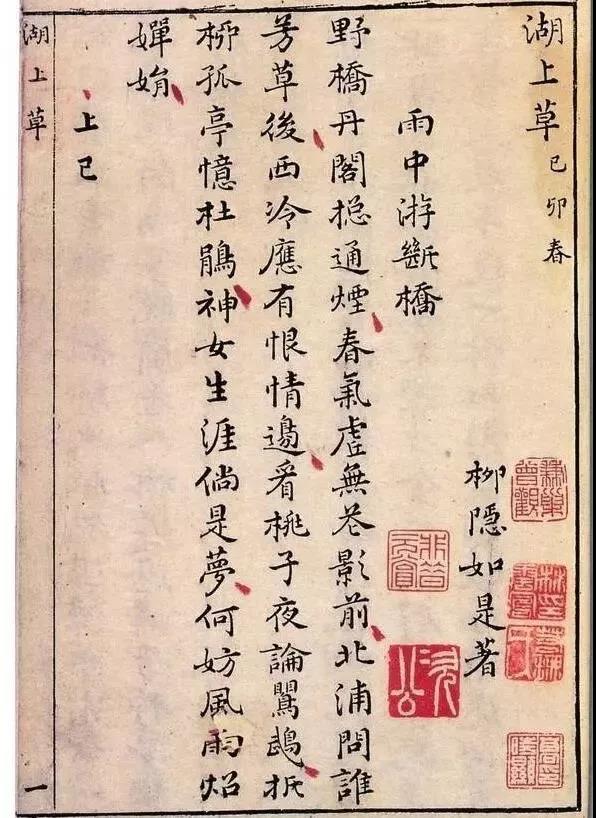 湖上草 己卯春
柳隱如是著
雨中游斷橋
野橋丹閣捴通煙春氣虛無花影前北浦問誰
芳草後西冷應有恨情邊看桃子夜論鸎鵡折
柳孤亭憶杜鵑神女生涯倘是夢何妨風雨炤
嬋娟
上巳
湖上草 一